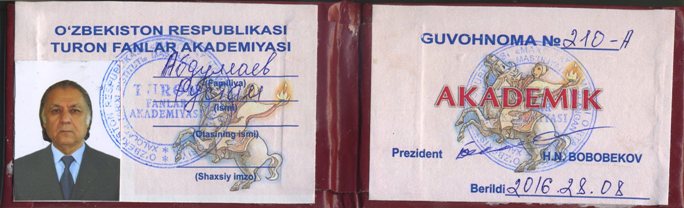 O'ZBEKISTON RESPUBLIKASI
TURON FANLAR AKADEMIYASI
Абдуллаев
(Familiya)
(Ismi)
(Otasining ismi)
(Shaxsiy imzo)
TURON
FANLAR
AKADEMIYASI
GUVOHNOMA № 210-A
AKADEMIK
Prezident H.N. BOBOBEKOV
Berildi 2016.28.08